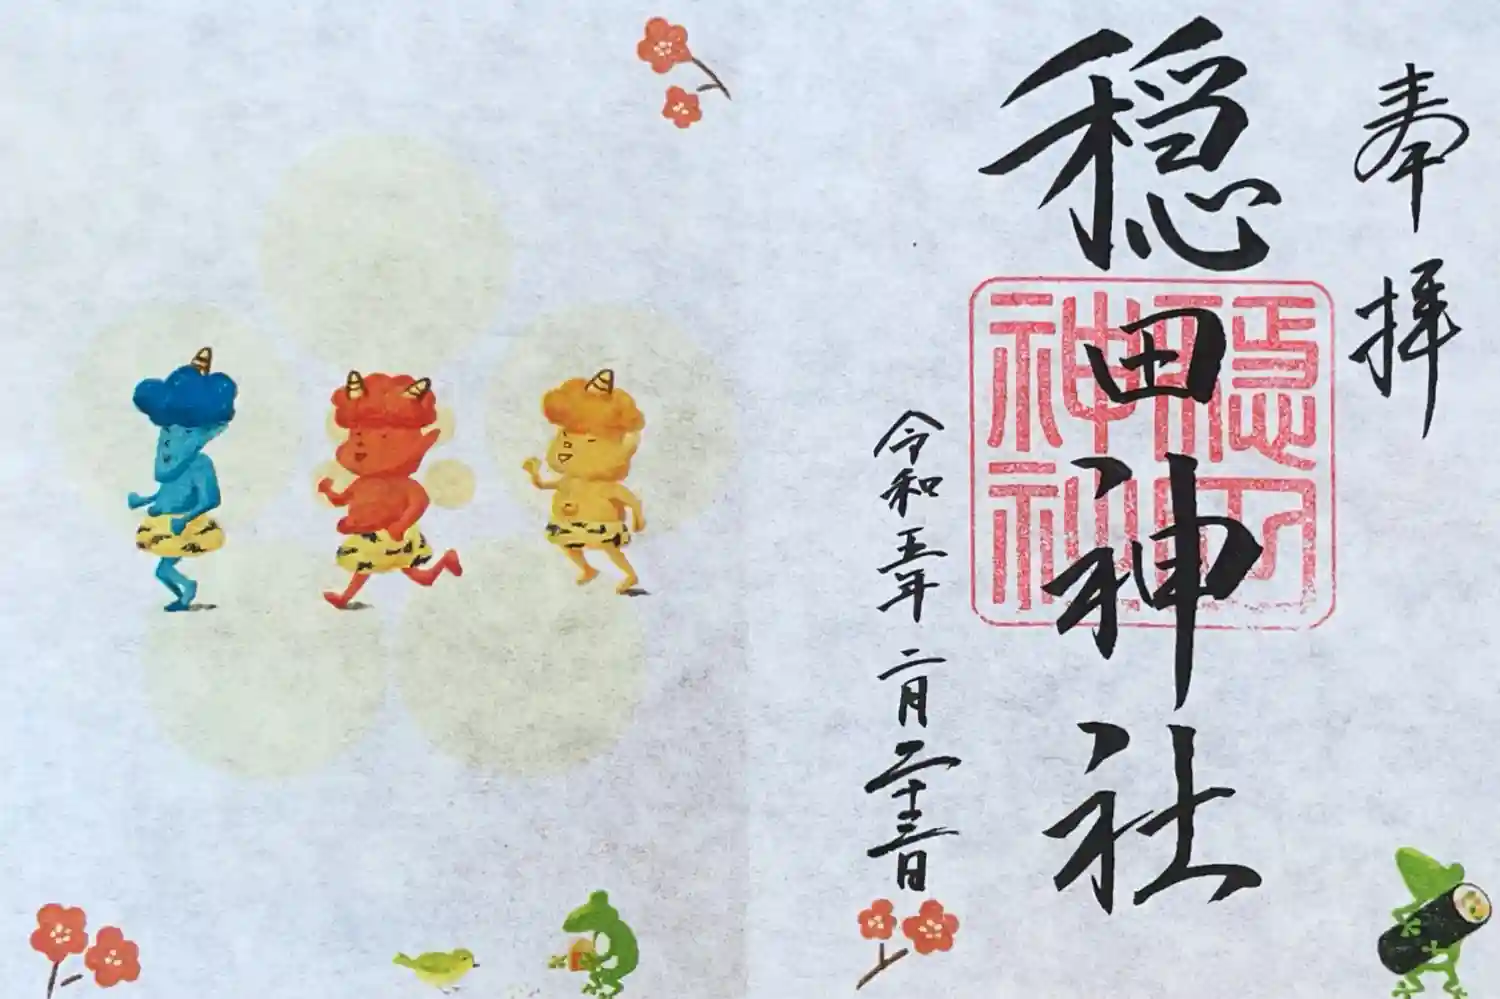 奉拝
穏田神社
令和五年 二月二十三日